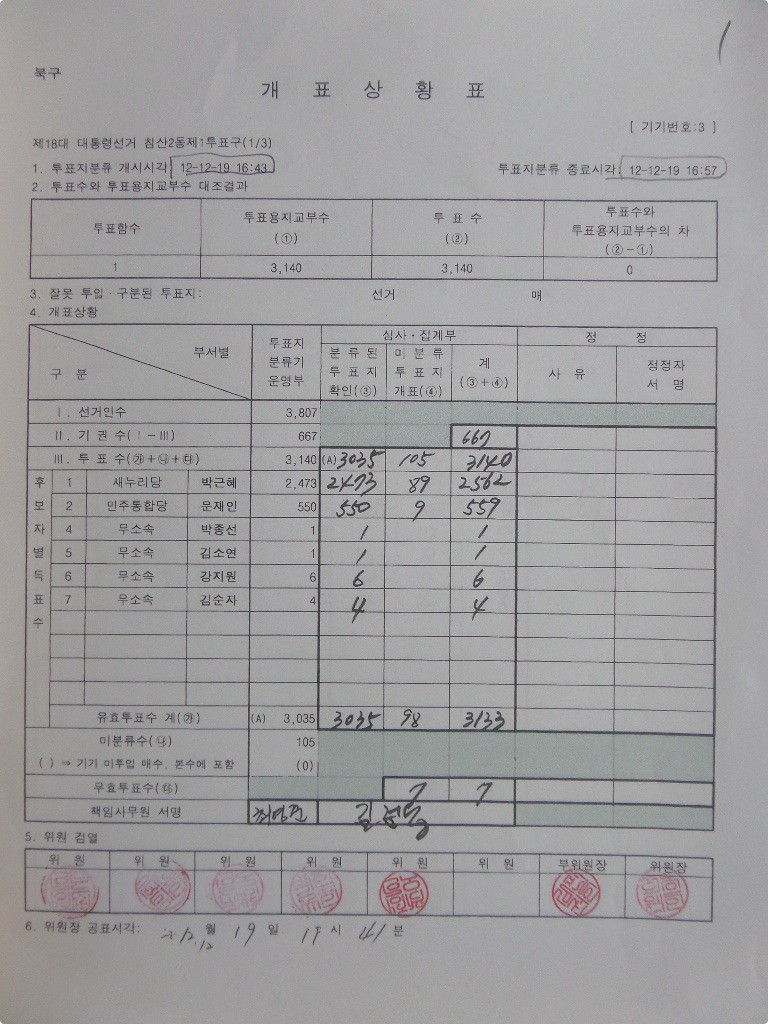 북구
개 표 상 황 표
[ 기기번호:3 ]
제18대 대통령선거 침산2동제1투표구(1/3)
1. 투표지분류 개시시각 12-12-19 16:43 투표지분류 종료시각: 12-12-19 16:57
2. 투표수와 투표용지교부수 대조결과
투표함수 투표용지교부수 (①) 투 표 수 (②) 투표수와 투표용지교부수의 차 (②-①)
1 3,140 3,140 0
3. 잘못 투입·구분된 투표지: 선거 매
4. 개표상황
구 분 부서별 투표지 분류기 운영부 심사·집계부 정 정
분 류 된 투 표 지 확인(③) 미 분 류 투 표 지 개표(④) 계 (③+④) 사 유 정정자 서 명
Ⅰ. 선거인수 3,807
Ⅱ. 기 권 수(Ⅰ-Ⅲ) 667 667
Ⅲ. 투 표 수(㉮+㉯+㉰) 3,140 (A) 3035 105 3140
후보자별득표수
1 새누리당 박근혜 2,473 2473 89 2562
2 민주통합당 문재인 550 550 9 559
4 무소속 박종선 1 1 1
5 무소속 김소연 1 1 1
6 무소속 강지원 6 6 6
7 무소속 김순자 4 4 4
유효투표수 계(㉮) (A) 3,035 3035 98 3133
미분류수(㉯) 105
( ) ⇒ 기기 미투입 매수, 본수에 포함 (0)
무효투표수(㉰) 7 7
책임사무원 서명
5. 위원 검열
위 원 위 원 위 원 위 원 위 원 위 원 부위원장 위원장
6. 위원장 공표시각: 12 월 19 일 19 시 41 분